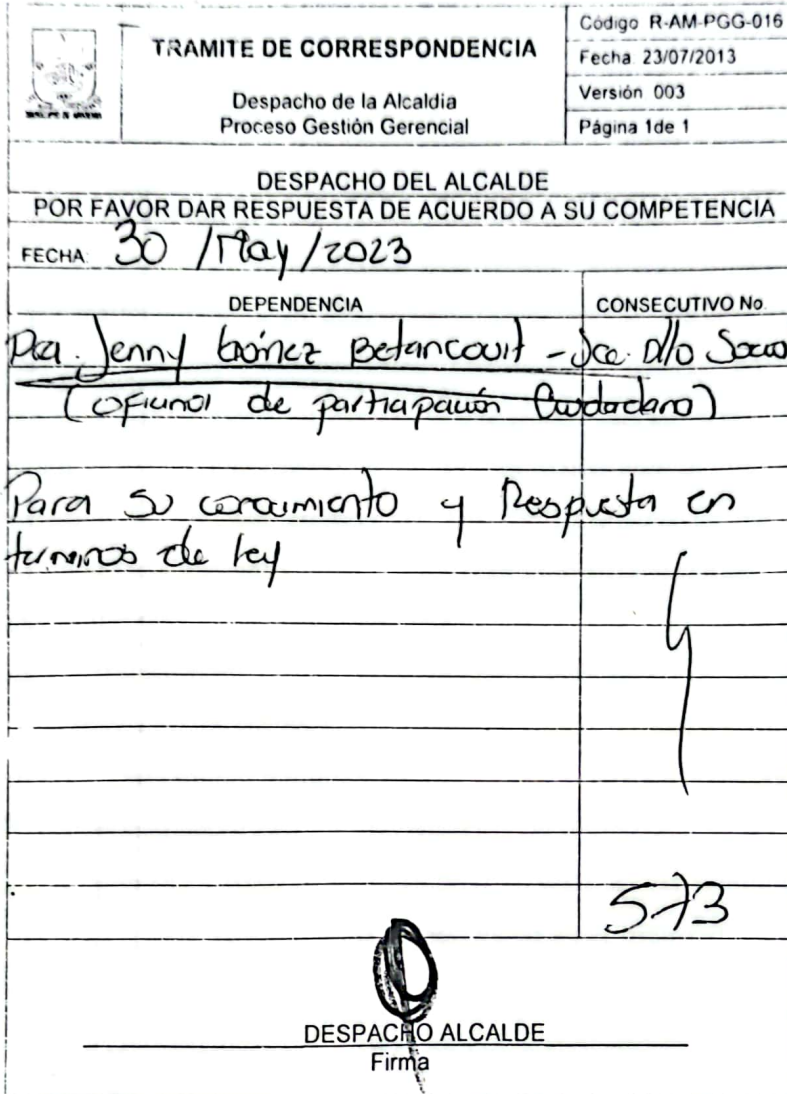 TRAMITE DE CORRESPONDENCIA
Despacho de la Alcaldia
Proceso Gestión Gerencial
Código R-AM-PGG-016
Fecha 23/07/2013
Versión 003
Página 1de 1
DESPACHO DEL ALCALDE
POR FAVOR DAR RESPUESTA DE ACUERDO A SU COMPETENCIA
FECHA: 30 /May/2023
DEPENDENCIA
CONSECUTIVO No.
Dra. Jenny Gómez Betancourt - Sec. Dllo Social
(oficina de participación Ciudadana)
Para su conocimiento y Respuesta en
terminos de ley
573
DESPACHO ALCALDE
Firma